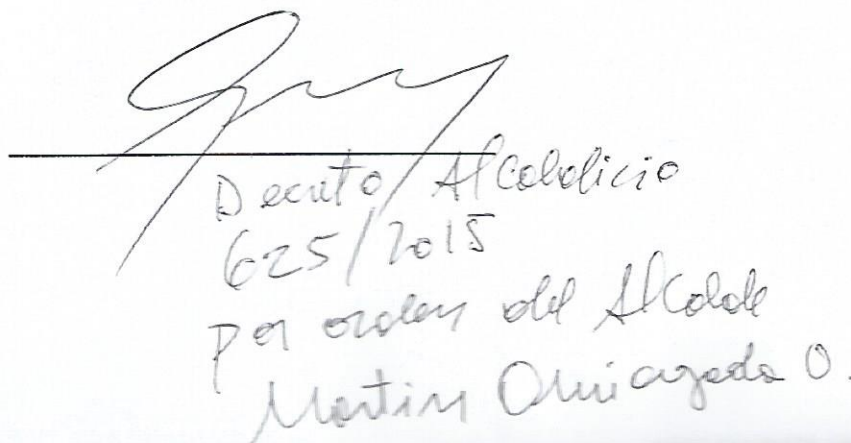 Decreto Alcaldicio
625/2015
Por orden del Alcalde
Martin